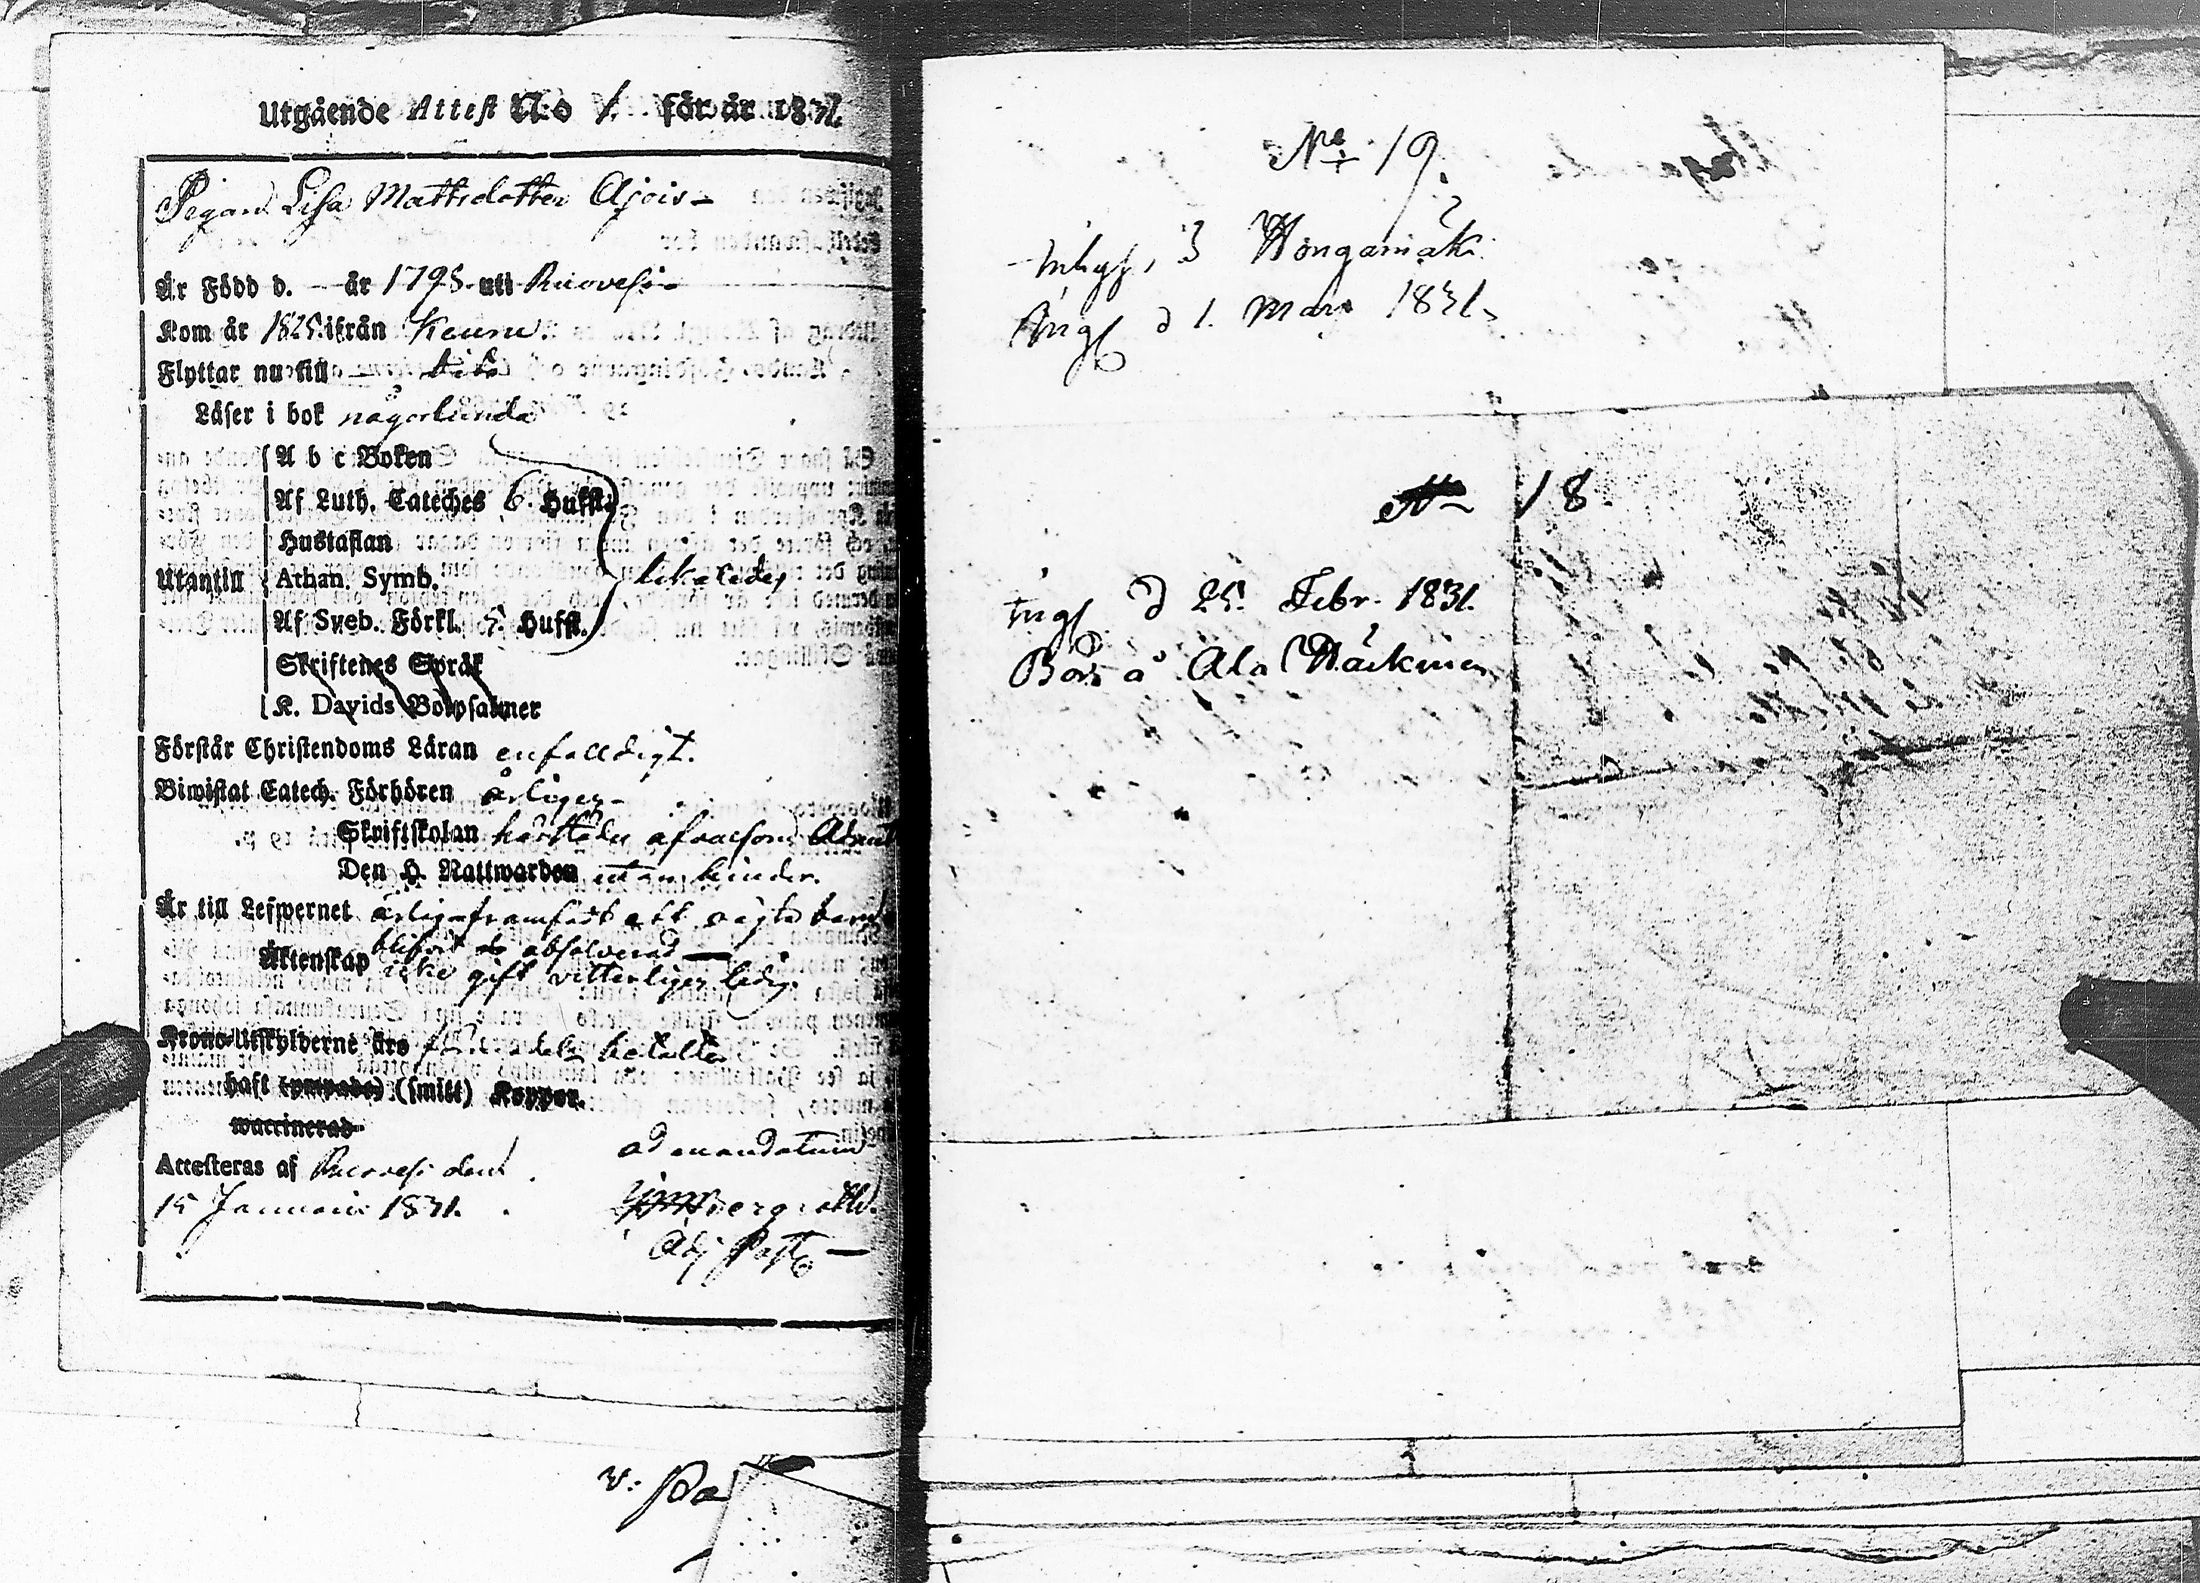 Utgående Attest N:o 1. för år 1831.
Pigan Lisa Mattsdotter Ajois
Är Född d. — år 1795 uti Ruovesi
Kom år 1825 ifrån Keuru.
Flyttar nu till
Läser i bok någorlunda
A b c Boken
Af Luth. Cateches 6. Hufst.
Hustaflan
Utantill Athan. Symb. likaledes
Af Sveb. Förkl. 5. Hufst.
Skriftenes Språk
K. Davids Botpsalmer
Förstår Christendoms Läran enfaldigt.
Biwistat Catech. Förhören årligen
Skriftskolan härstädes
Den H. Nattwarden utan hinder.
Är till Lefwernet ärlig
blifvit absolverad —
Äktenskap icke gift vitterligen ledig.
Krono-Utskylderne års
haft (ympade) (smitt) Koppor.
waccinerad
ad mandatum
Attesteras af Ruovesi den
15 Januarii 1831.
Adj Past
v. Pa
No 19.
Hongamäki
Ing d 1. Mars 1831.
No 18.
Ing d 25. Febr. 1831.
Bor å Ala